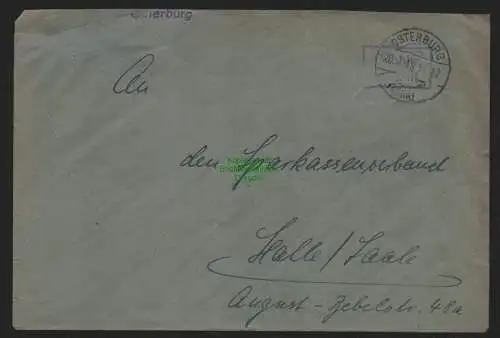 Osterburg
OSTERBURG
An
den Sparkassenverband
Halle/Saale
August-Bebelstr. 48a